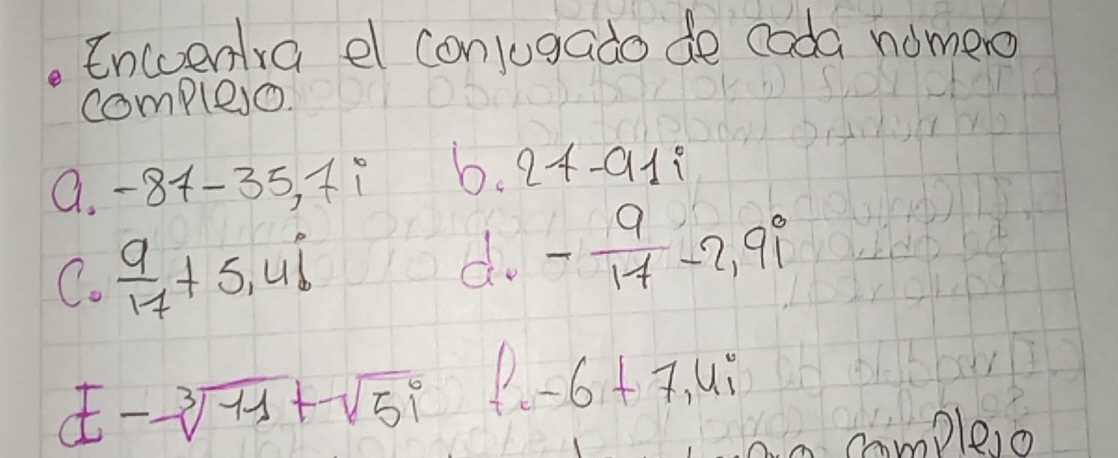 • Encuentra el conjugado de cada número
complejo.
a. -87-35,7i b. 27-91i
c. 9/17 + 5,4i d. - 9/17 -2,9i
E -∛11 + √5i f. -6 + 7,4i
complejo